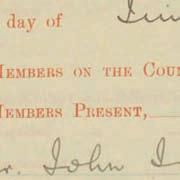 day of
Members on the Coun
Members Present,
r. John